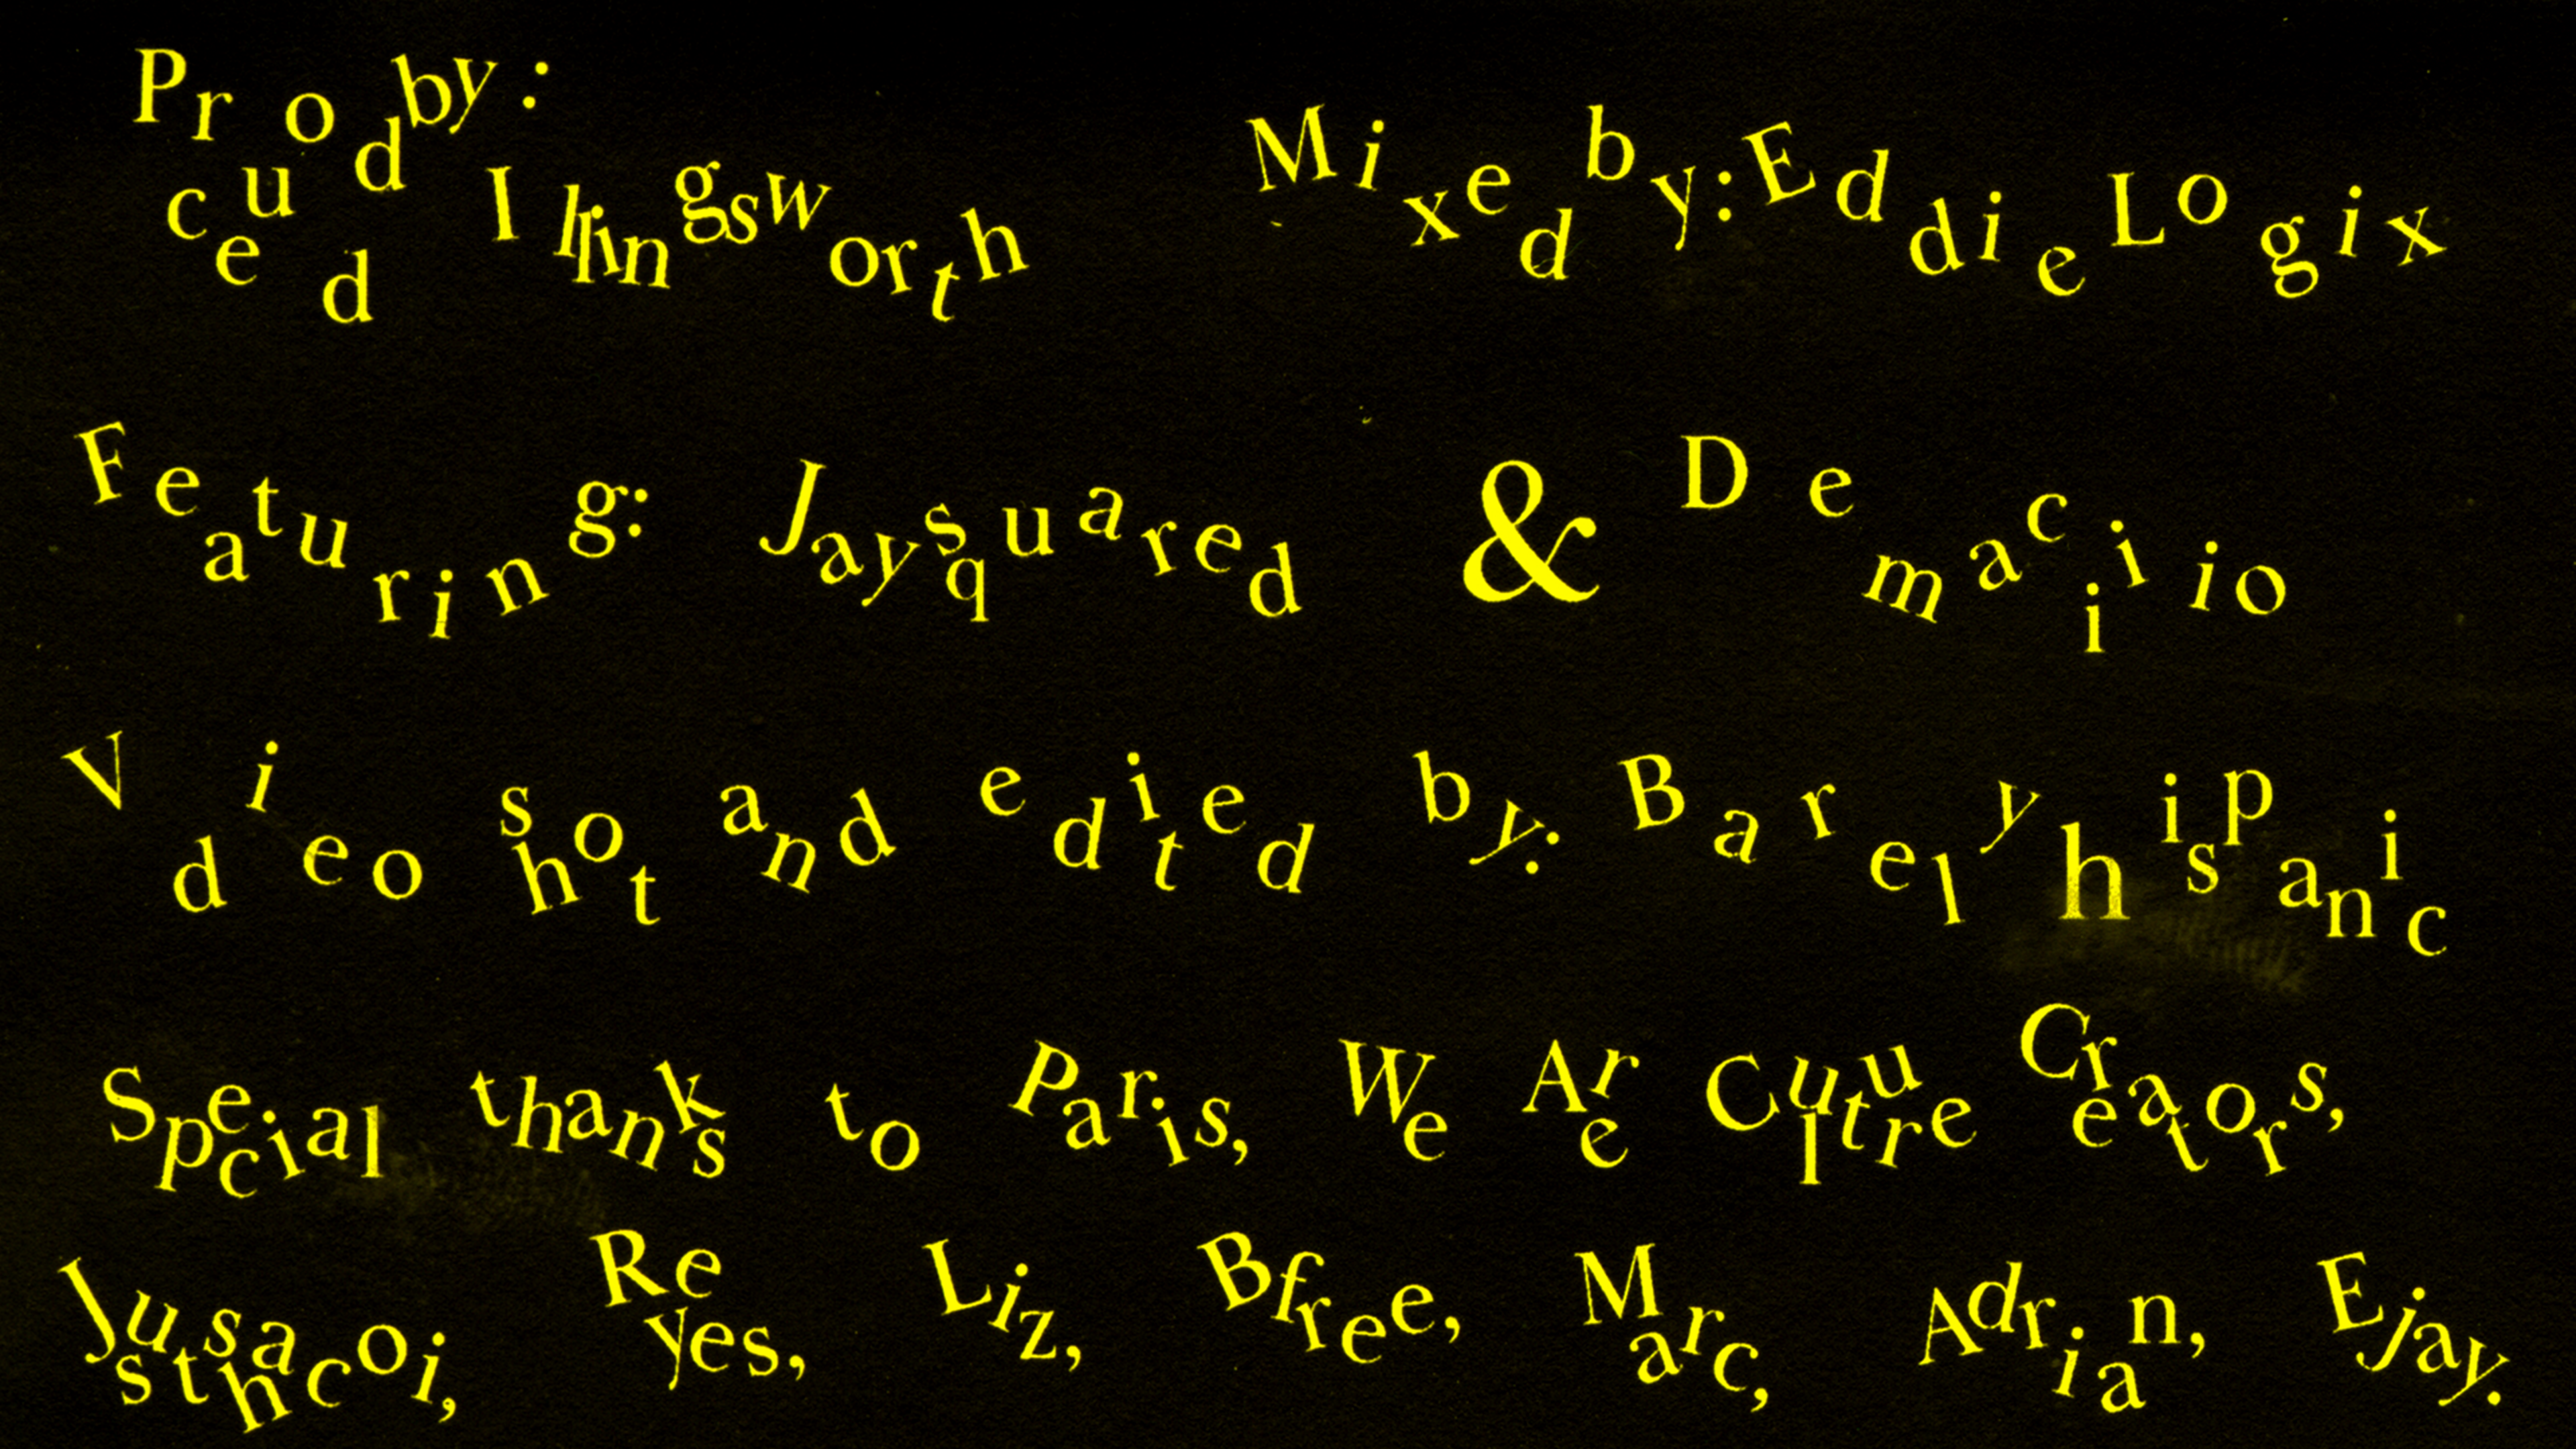 Produced by: Illingsworth Mixed by: Eddie Logix
Featuring: Jaysquared & Demaciiio
Video shot and edited by: Barelyhispanic
Special thanks to Paris, We Are Culture Creators,
Justshacoi, Reyes, Liz, Bfree, Marc, Adrian, Ejay.